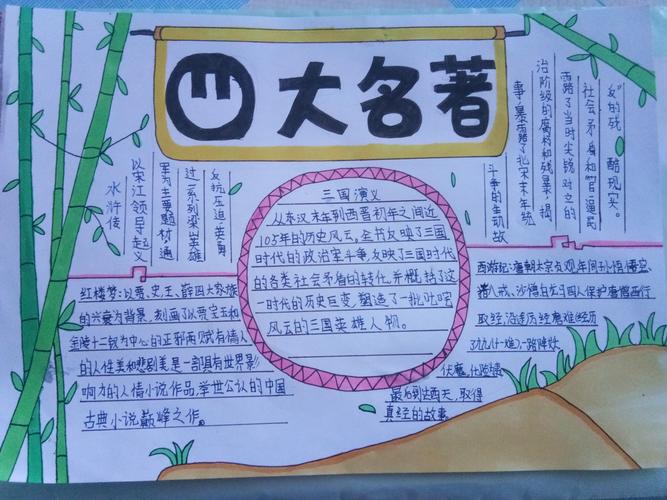 四大名著
水浒传
以宋江领导起义
军为主要题材,通
过一系列梁山英雄
反抗压迫、英勇
斗争的生动故
事,暴露了北宋末年统
治阶级的腐朽和残暴,揭
露了当时尖锐对立的
社会矛盾和“官逼民
反”的残酷现实。
三国演义
从东汉末年到西晋初年之间近
105年的历史风云,全书反映了三国
时代的政治军斗争反映了三国时代
的各类社会矛盾的转化,并概括了这
一时代的历史巨变,塑造了一批叱咤
风云的三国英雄人物。
红楼梦:以贾、史、王、薛四大家族
的兴衰为背景,刻画了以贾宝玉和
金陵十二钗为中心的正邪两赋有情人
的人性美和悲剧美是一部具有世界影
响力的人情小说作品,举世公认的中国
古典小说巅峰之作。
西游记:唐朝太宗贞观年间孙悟空、
猪八戒、沙僧白龙马四人保护唐僧西行
取经,沿途历经磨难(经历
一难),一路降妖
伏魔,化险
最后到达西天,取得
真经的故事.